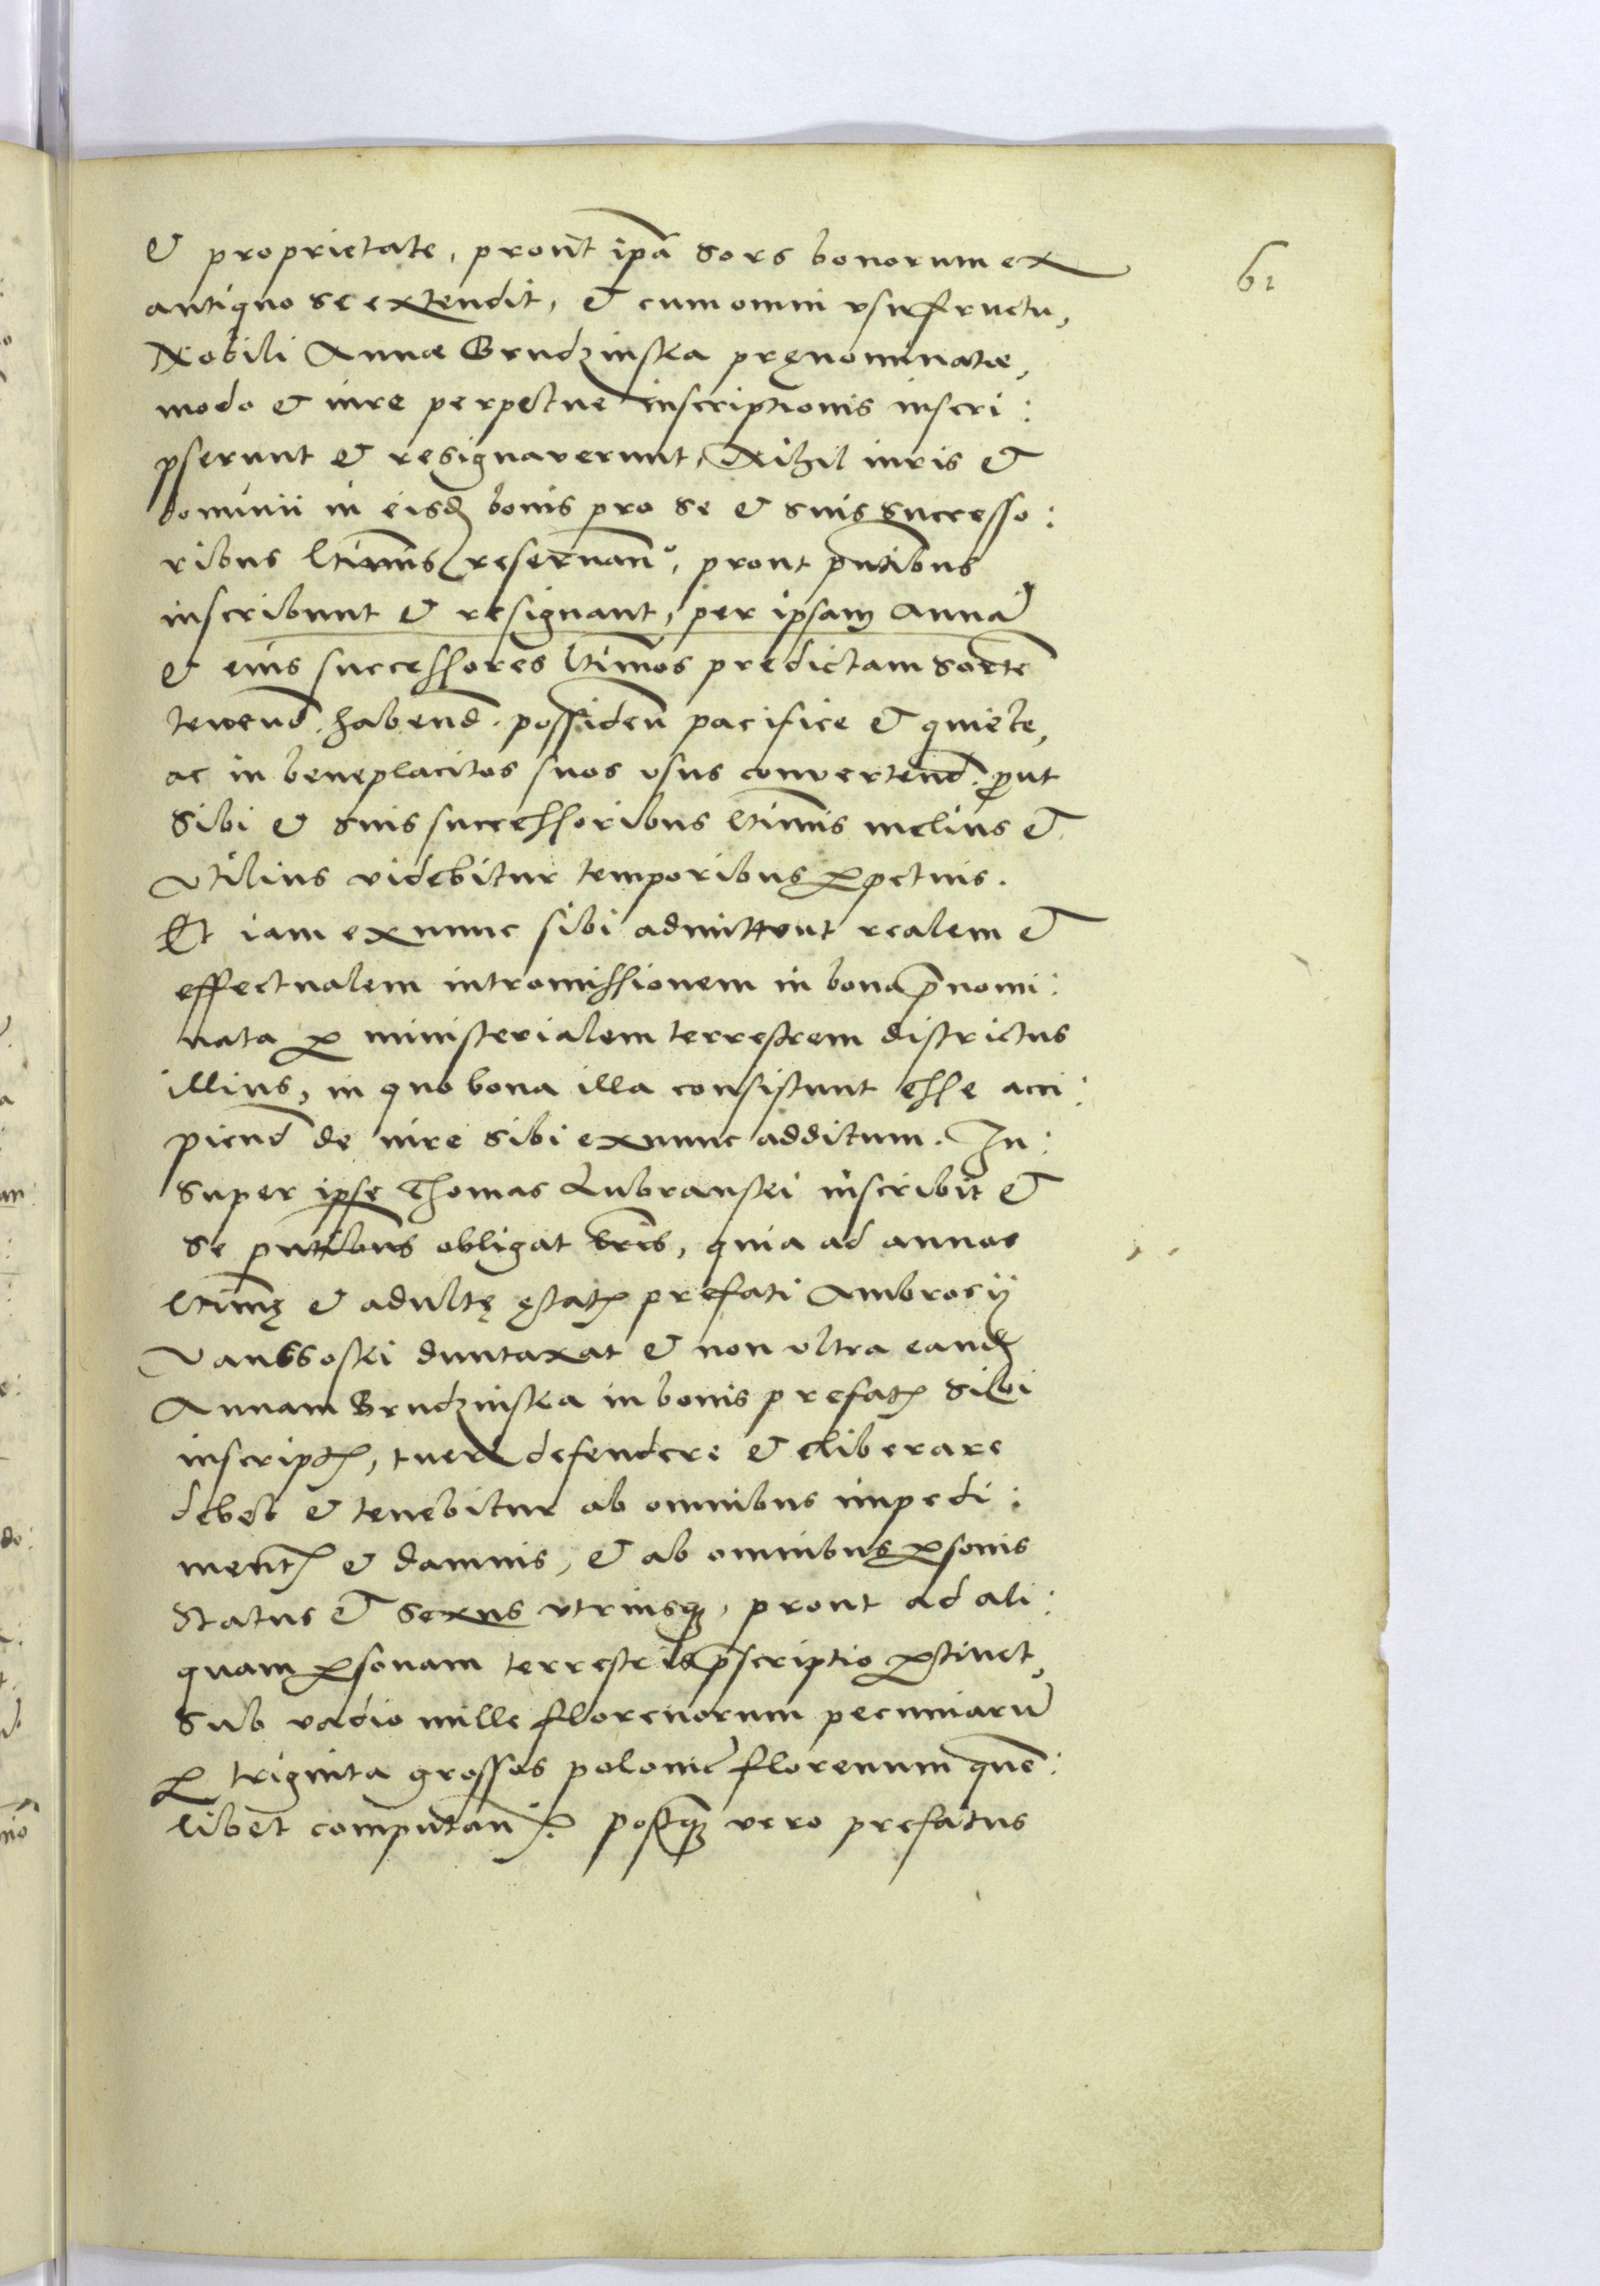 & proprietate, prout ipā sors bonorum ex
61
antiquo se extendit, & cum omni vsufructu,
Nobili Annæ Grudzinska pręnominatæ,
modo & iure perpetue inscriptionis inscri:
pserunt & resignaverunt, Nihil iuris &
dominii in eisd bonis pro se & suis successo:
ribus ltimis reseruan°, prout pntibus
inscribunt & resignant, per ipsam Annā
& eius successores ltimos predictam sortē
tenend. habend. possiden pacifice & quiete,
ac in beneplacitos suos vsus convertend. put
sibi & suis successoribus ltimis melius &
vtilius videbitur temporibus ppetuis.
Et iam ex nunc sibi admittunt realem &
effectualem intromissionem in bona pnomi:
nata p ministerialem terrestrem districtus
illius, in quo bona illa consistunt esse acci:
piend de iure sibi ex nunc additum. In:
super ipse Thomas Lubranski inscribit &
se pntibus obligat, quia ad annos
ltimę & adultę ętat prefati Ambrosÿ
Vanssoski duntaxat & non vltra eand
Annam Grudzinska in bonis prefat sibi
inscript, tueri defendere & eliberare
debet & tenebitur ab omnibus impedi:
ment & damnis, & ab omnibus psonis
status & sexus vtriusq, prout ad ali:
quam psonam terrestris pscriptio ptinet,
sub vadio mille florenorum pecuniarū
p triginta grossos polonic florenum quē:
libet computan. postq vero prefatus